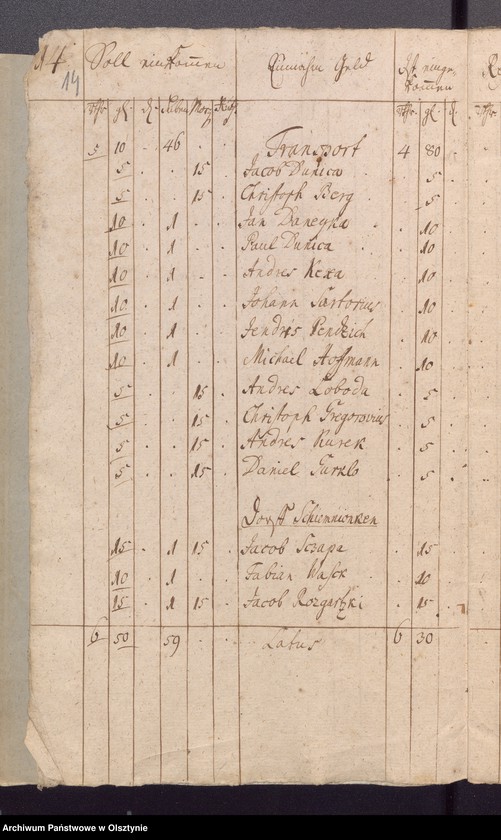 14
14
Soll einkommen Einnahm Geld Ist einge kommen
5 10 . 46 . . Transport 4 80
. 5 . . 15 . Jacob Dunica . 5
. 5 . . 15 . Christoph Berg . 5
. 10 . 1 . . Jan Daneyka . 10
. 10 . 1 . . Paul Dunica . 10
. 10 . 1 - . Andres Kexa . 10
. 10 . 1 . . Johann Sartorius . 10
. 10 . 1 . . Jendris Pendzich . 10
. 10 . 1 . Michael Hoffmann . 10
. 5 . . 15 . Andres Loboda . 5
. 5 . . 15 . Christoph Gregorovius . 5
. 5 . . 15 . Andres Kurek . 5
. 5 . . 15 . Daniel . 5
Dorff Schiemnionken
. 15 . 1 15 . Jacob Sczapa . 15
. 10 . 1 . . Fabian Wasck . 10
. 15 . 1 15 . Jacob . 15
6 50 . 59 . . Latus 6 30
Archiwum Państwowe w Olsztynie